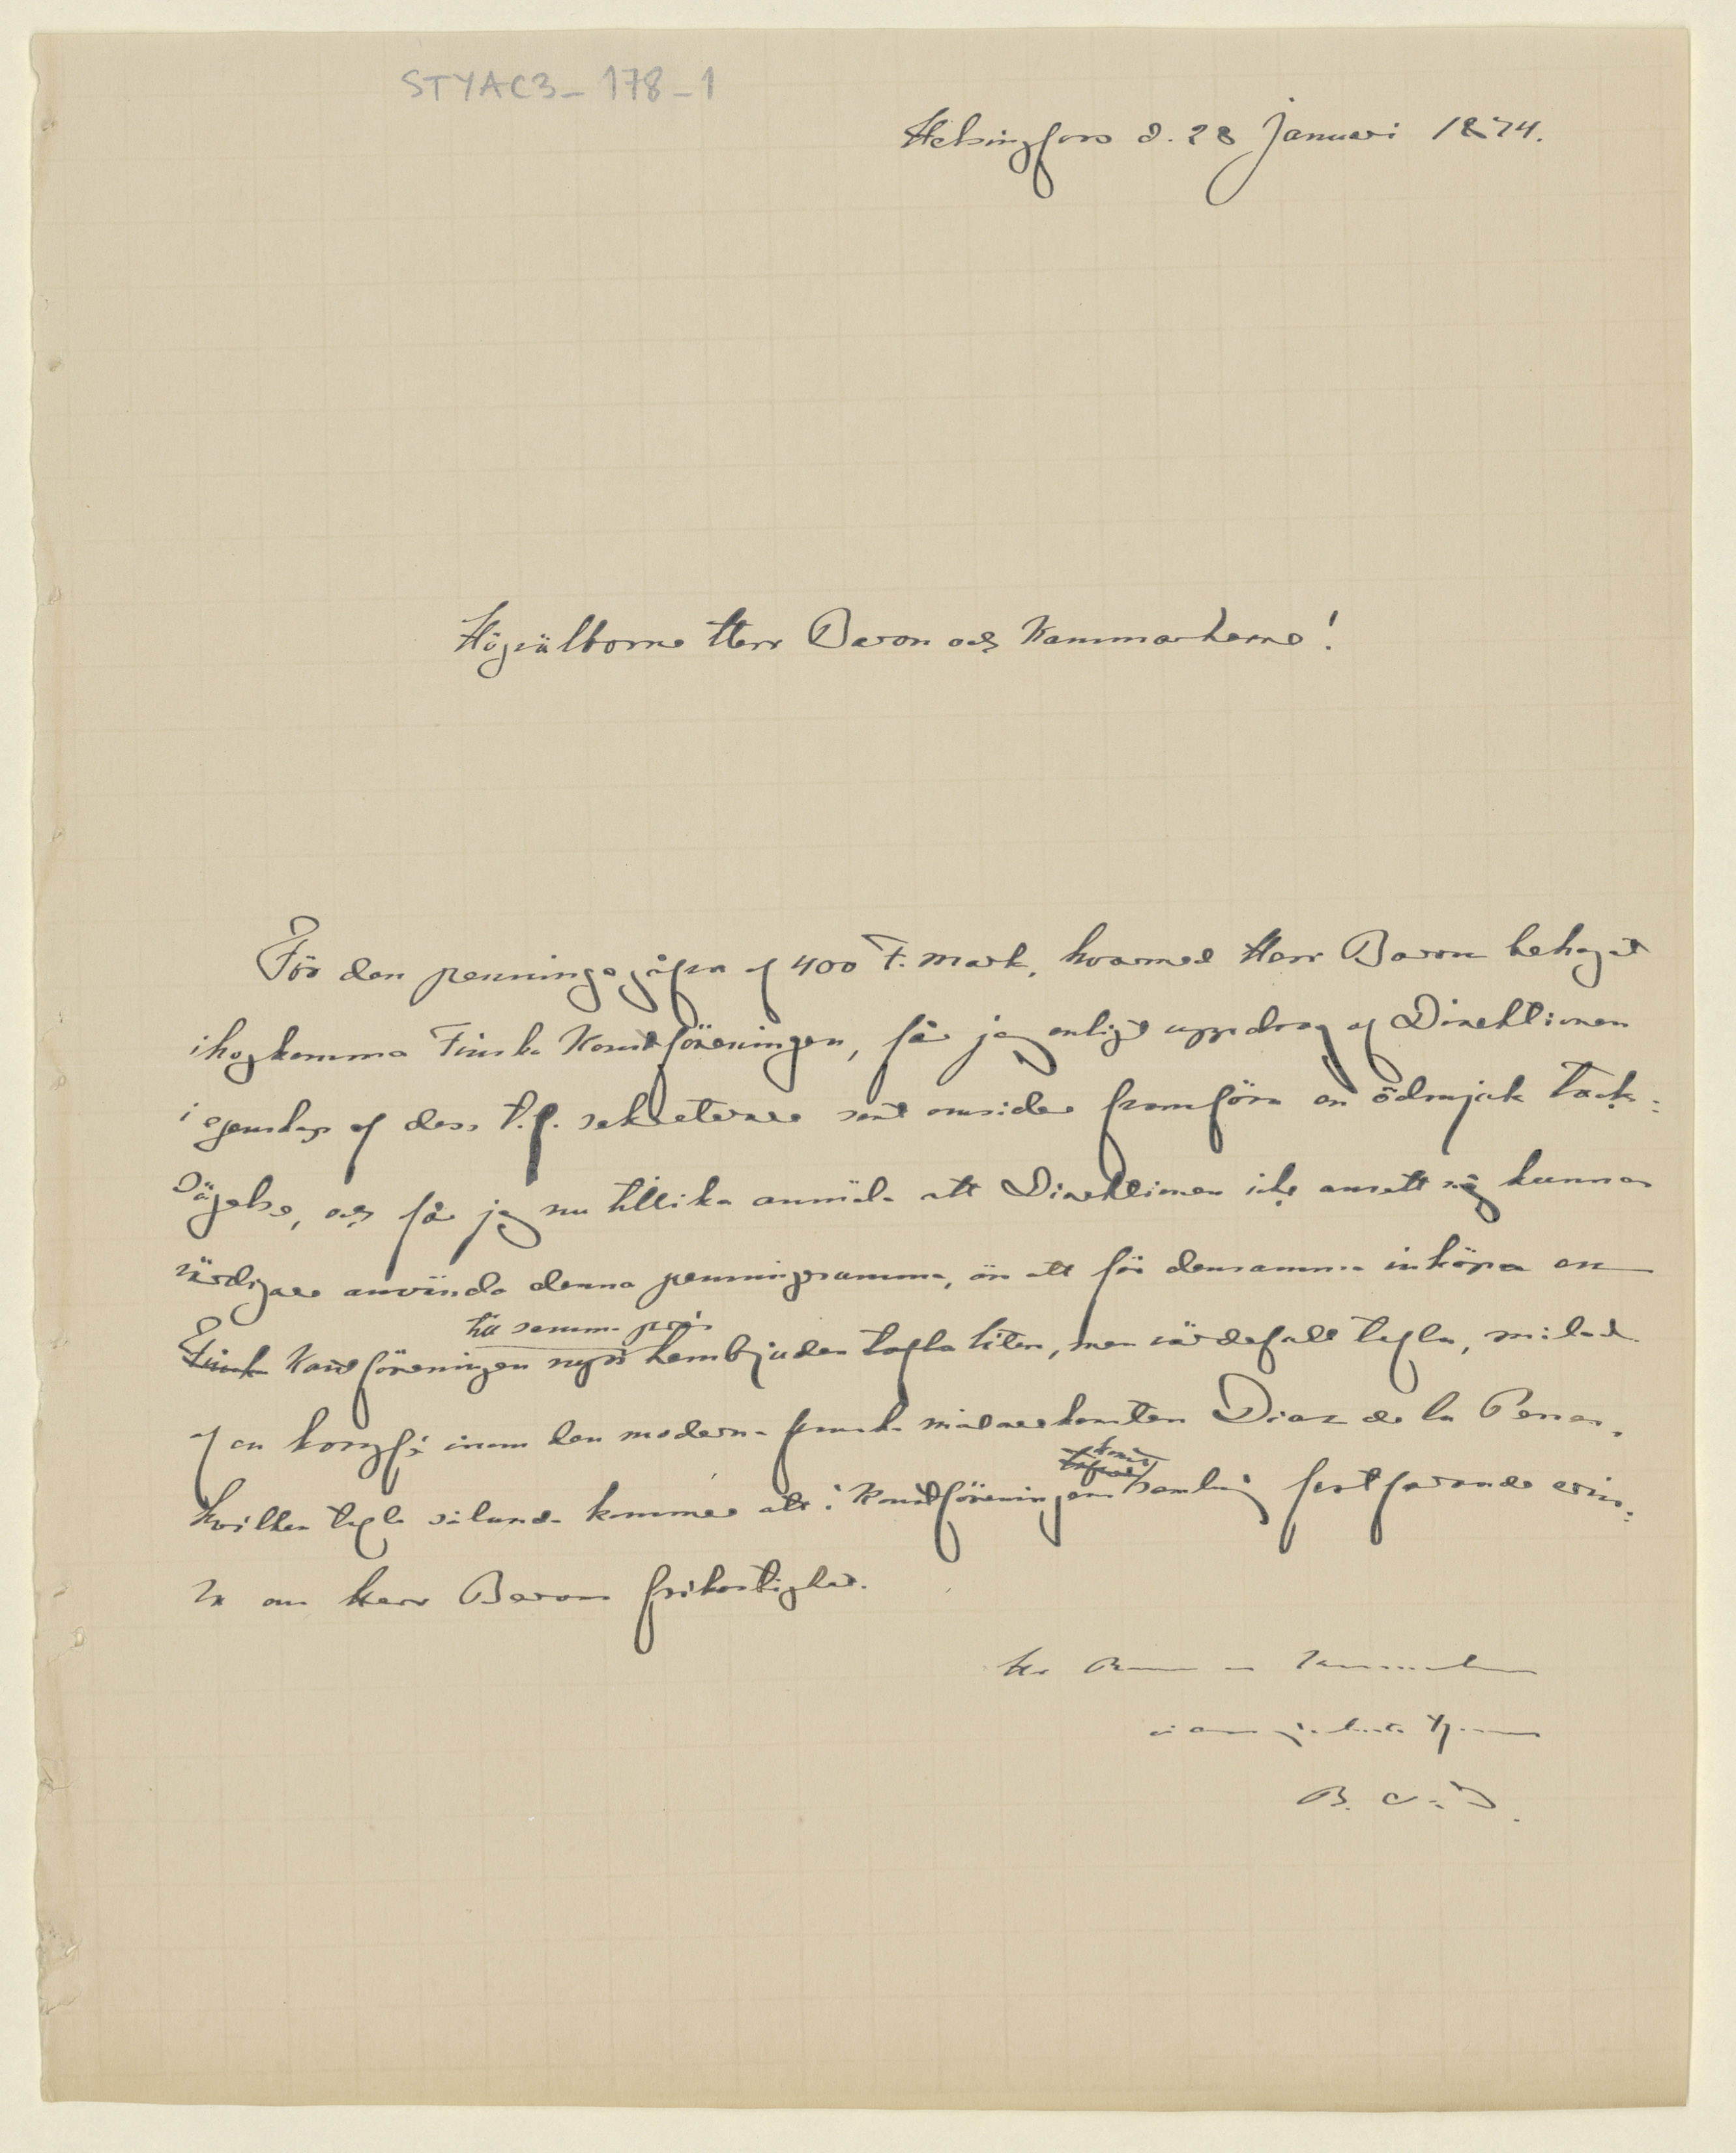 STYAC3_178_1
Helsingfors d. 28 Januari 1874.
Högvälborne Herr Baron och Kammarherre!
För den penningegåfva af 400 F. mark, hvarmed Herr Baron behagat
ihogkomma Finska Konstföreningen, får jag enligt uppdrag af Direktionen
i egenskap af dess t.f. sekreterare sent omsider framföra en ödmjuk tack-
sägelse, och får jag nu tillika anmäla att Direktionen icke ansett sig kunna
värdigare använda denna penningsumma, än att för densamma inköpa en
till samma pris
Finska Konstföreningen nyss hembjuden tafla liten, men värdefull tafla, målad
af en koryfé inom den moderna franska målarekonsten Diaz de la Pena,
konst
hvilken tafla sålunda kommer att i Konstföreningens samling fortfarande erin-
ra om Herr Barons frikostighet.
Herr Baron och Kammarherre
B.